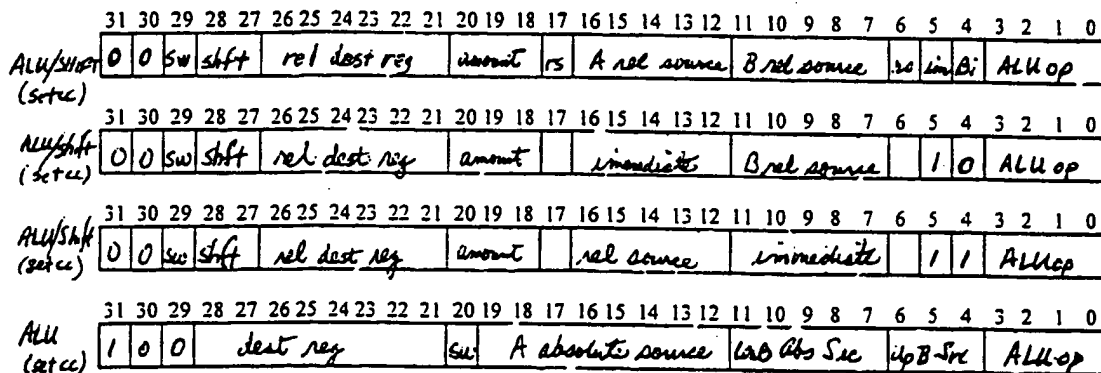 31 30 29 28 27 26 25 24 23 22 21 20 19 18 17 16 15 14 13 12 11 10 9 8 7 6 5 4 3 2 1 0
ALU/SHIFT 0 0 sw shft rel dest reg amount rs A rel source B rel source rs im Bi ALU op
(setcc)
31 30 29 28 27 26 25 24 23 22 21 20 19 18 17 16 15 14 13 12 11 10 9 8 7 6 5 4 3 2 1 0
ALU/shft 0 0 sw shft rel dest reg amount immediate B rel source 1 0 ALU op
(setcc)
31 30 29 28 27 26 25 24 23 22 21 20 19 18 17 16 15 14 13 12 11 10 9 8 7 6 5 4 3 2 1 0
ALU/Shft 0 0 sw shft rel dest reg amount rel source immediate 1 1 ALU op
(setcc)
31 30 29 28 27 26 25 24 23 22 21 20 19 18 17 16 15 14 13 12 11 10 9 8 7 6 5 4 3 2 1 0
ALU 1 0 0 dest reg sw A absolute source B Abs Src B Src ALU op
(setcc)